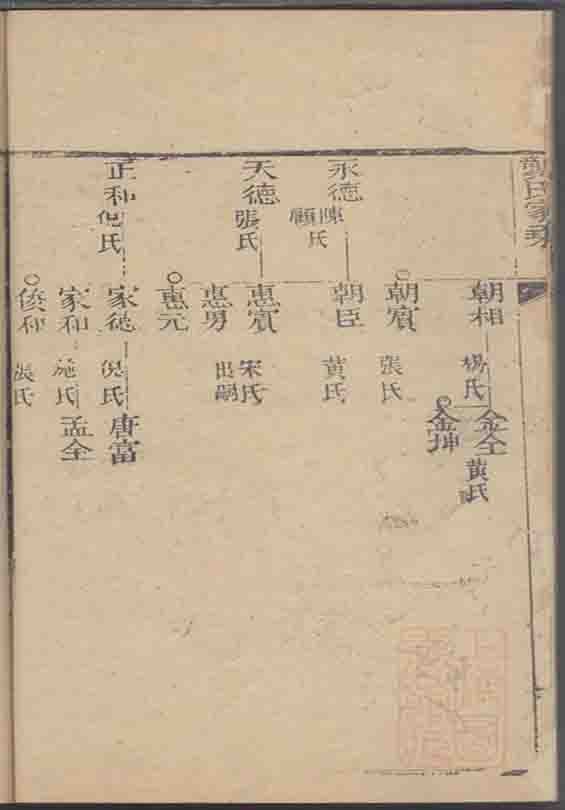 氏家乘
朝相
楊氏
金全
黃氏
金坤
朝賓
張氏
永德
陳氏
顧
朝臣
黃氏
天德
張氏
惠賓
宋氏
惠男
出嗣
惠元
正和
倪氏
家德
倪氏
唐富
家和
施氏
孟全
俊和
張氏